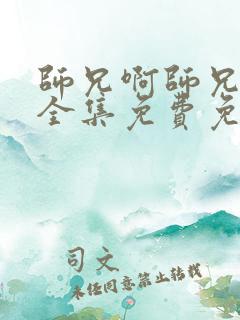 師兄啊師兄
全集免費免
司文
未经同意禁止转载